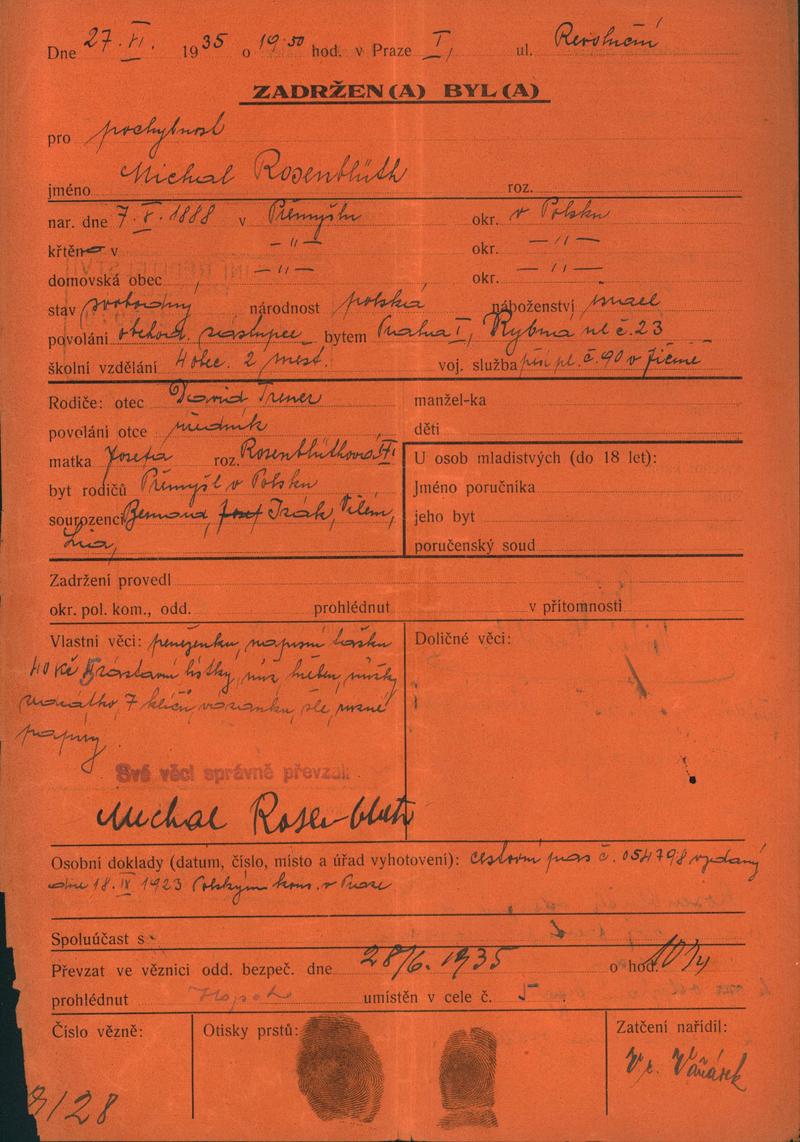 Dne 27. VI. 1935 o 19 50 hod. v Praze I, ul. Revoluční
ZADRŽEN(A) BYL(A)
pro pochybnost
jméno Michal Rosenblüth roz.
nar. dne 7. X. 1888 v Přemyšlu okr. v Polsku
křtěn v — " — okr. — " —
domovská obec — " — okr. — " —
stav svobodný národnost polská náboženství israel
povolání obchod. zástupce bytem Praha I, Rybná ul č. 23
školní vzdělání 4 obec. 2 měst. voj. služba pěš. pl. č. 90 v Jičíně
Rodiče: otec David Trener manžel-ka
povolání otce úředník děti
matka Josefa roz. Rosenblüthová U osob mladistvých (do 18 let):
byt rodičů Přemyšl v Polsku Jméno poručníka
sourozenci Bernard, Josef Izák, Vilém, jeho byt
Lia, poručenský soud
Zadržení provedl
okr. pol. kom., odd. prohlédnut v přítomnosti
Vlastní věci: peněženku, náprsní tašku Doličné věci:
40 Kč zástavní lístky, nůž, hřeben, nůžky
zrcátko, 7 klíčů, vázanku, šle, různé
papíry
Své věci správně převzal
Michal Rosenblüth
Osobní doklady (datum, číslo, místo a úřad vyhotovení): cestovní pas č. 054798 vydaný
dne 18. IX 1923 Polským kons. v Praze
Spoluúčast s
Převzat ve věznici odd. bezpeč. dne 28/6. 1935 o hod. 10¼
prohlédnut umístěn v cele č. 5
Číslo vězně: Otisky prstů: Zatčení nařídil:
Vaňásek
3/28